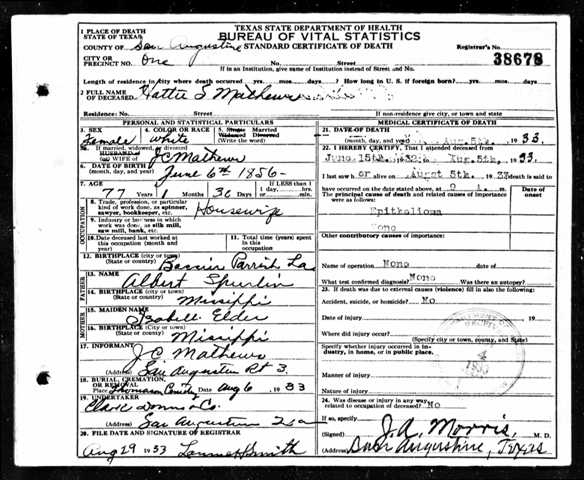 TEXAS STATE DEPARTMENT OF HEALTH
BUREAU OF VITAL STATISTICS
STANDARD CERTIFICATE OF DEATH
1 PLACE OF DEATH
STATE OF TEXAS
COUNTY OF San Augustine
Registrar's No.
38678
CITY OR
PRECINCT NO. One No. Street
If in an Institution, give name of Institution instead of Street and No.
Length of residence in city where death occurred yrs. mos. days. ? How long in U. S. if foreign born? yrs. mos. days.
2 FULL NAME
OF DECEASED Hattie S Mathews
Residence: No. Street If non-residence give city or town and state
PERSONAL AND STATISTICAL PARTICULARS
3. SEX Female
4. COLOR OR RACE White
5. Single Married
Widowed Divorced
(Write the word)
5a. If married, widowed, or divorced
HUSBAND of
(or) WIFE of J C Mathews
6. DATE OF BIRTH
(month, day, year) June 6th 1856-
7. AGE 77 Years 1 Months 30 Days
IF LESS than 1
day
8. Trade, profession, or particular
kind of work done, as spinner,
sawyer, bookkeeper, etc. Housewife
9. Industry or business in which
work was done, as silk mill,
saw mill, bank, etc.
10. Date deceased last worked at
this occupation (month and
year)
11. Total time (years)
spent in this
occupation
OCCUPATION
12. BIRTHPLACE (city or town)
(State or country) Parrish La
13. NAME Albert Spurlin
14. BIRTHPLACE (city or town)
(State or country) Missippi
FATHER
15. MAIDEN NAME Isabell Elder
16. BIRTHPLACE (city or town)
(State or country) Missippi
MOTHER
17. INFORMANT J C Mathews
(Address) San Augustin Rt 3.
18. BURIAL, CREMATION,
OR REMOVAL
Place Date Aug 6 1933
19. UNDERTAKER
(Address) San Augustin
20. FILE DATE AND SIGNATURE OF REGISTRAR
Aug 29 1933 Smith
MEDICAL CERTIFICATE OF DEATH
21. DATE OF DEATH
(month, day, year) Aug. 5th, 1933.
22. I HEREBY CERTIFY, That I attended deceased from
June 15th, Aug. 5th, 1933.
I last saw h er alive on August 5th. 1933 death is said to
have occurred on the date stated above, at
The principal cause of death and related causes of importance
were as follows:
Date of
onset
Epithelioma
None
Other contributory causes of importance:
Name of operation None date of
What test confirmed diagnosis? None Was there an autopsy?
23. If death was due to external causes (violence) fill in also the following.
Accident, suicide, or homicide? No
Date of injury 19
Where did injury occur?
(Specify city or town, county, and State)
Specify whether injury occurred in
industry, in home, or in public place.
Manner of injury
Nature of injury
24. Was disease or injury in any way
related to occupation of deceased? No
If so, specify
(Signed) J.A. Morris, M. D.
(Address) San Augustine, Texas